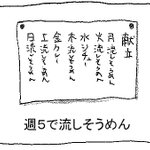 献立
月 流しそうめん
火 流しそうめん
水 シチュー
木 流しそうめん
金 カレー
土 流しそうめん
日 流しそうめん
週5で流しそうめん